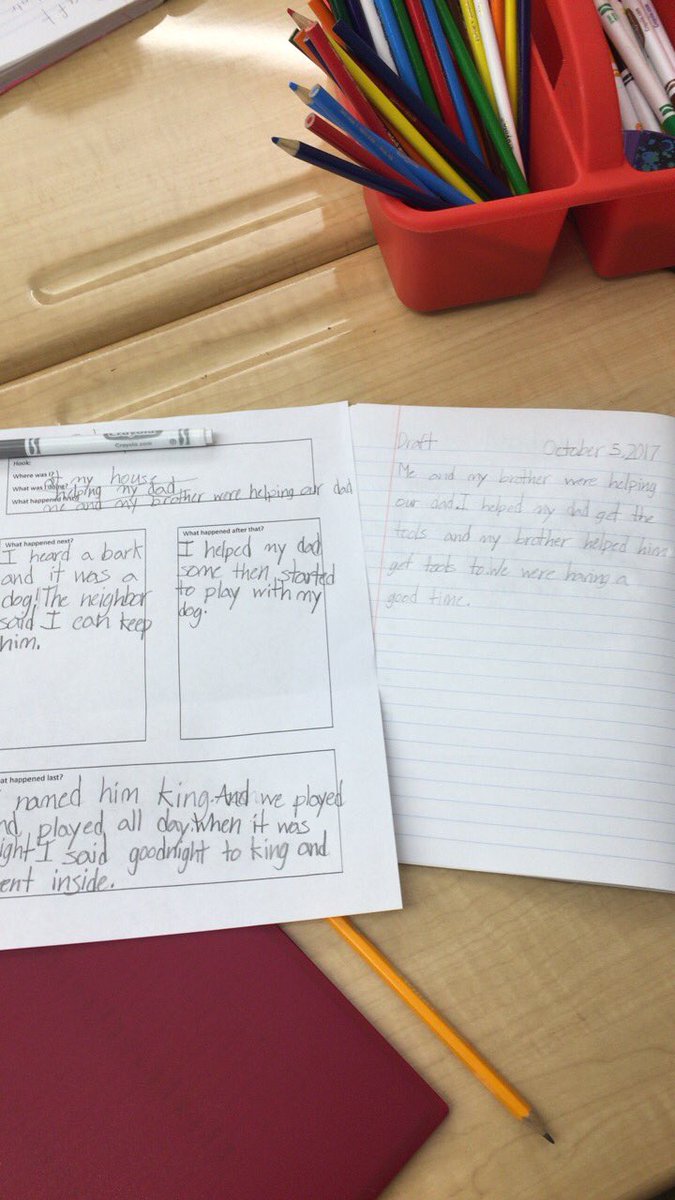 Crayola
Crayola.com
Hook:
Where was I?
at my house
What was I doing?
helping my dad
What happened first?
me and my brother were helping our dad
What happened next?
I heard a bark
and it was a
dog! The neighbor
said I can keep
him.
What happened after that?
I helped my dad
some then started
to play with my
dog.
at happened last?
named him king. And we played
nd played all day. When it was
ight I said goodnight to king and
ent inside.
Draft October 5, 2017
Me and my brother were helping
our dad. I helped my dad get the
tools and my brother helped him
get tools to. We were having a
good time.